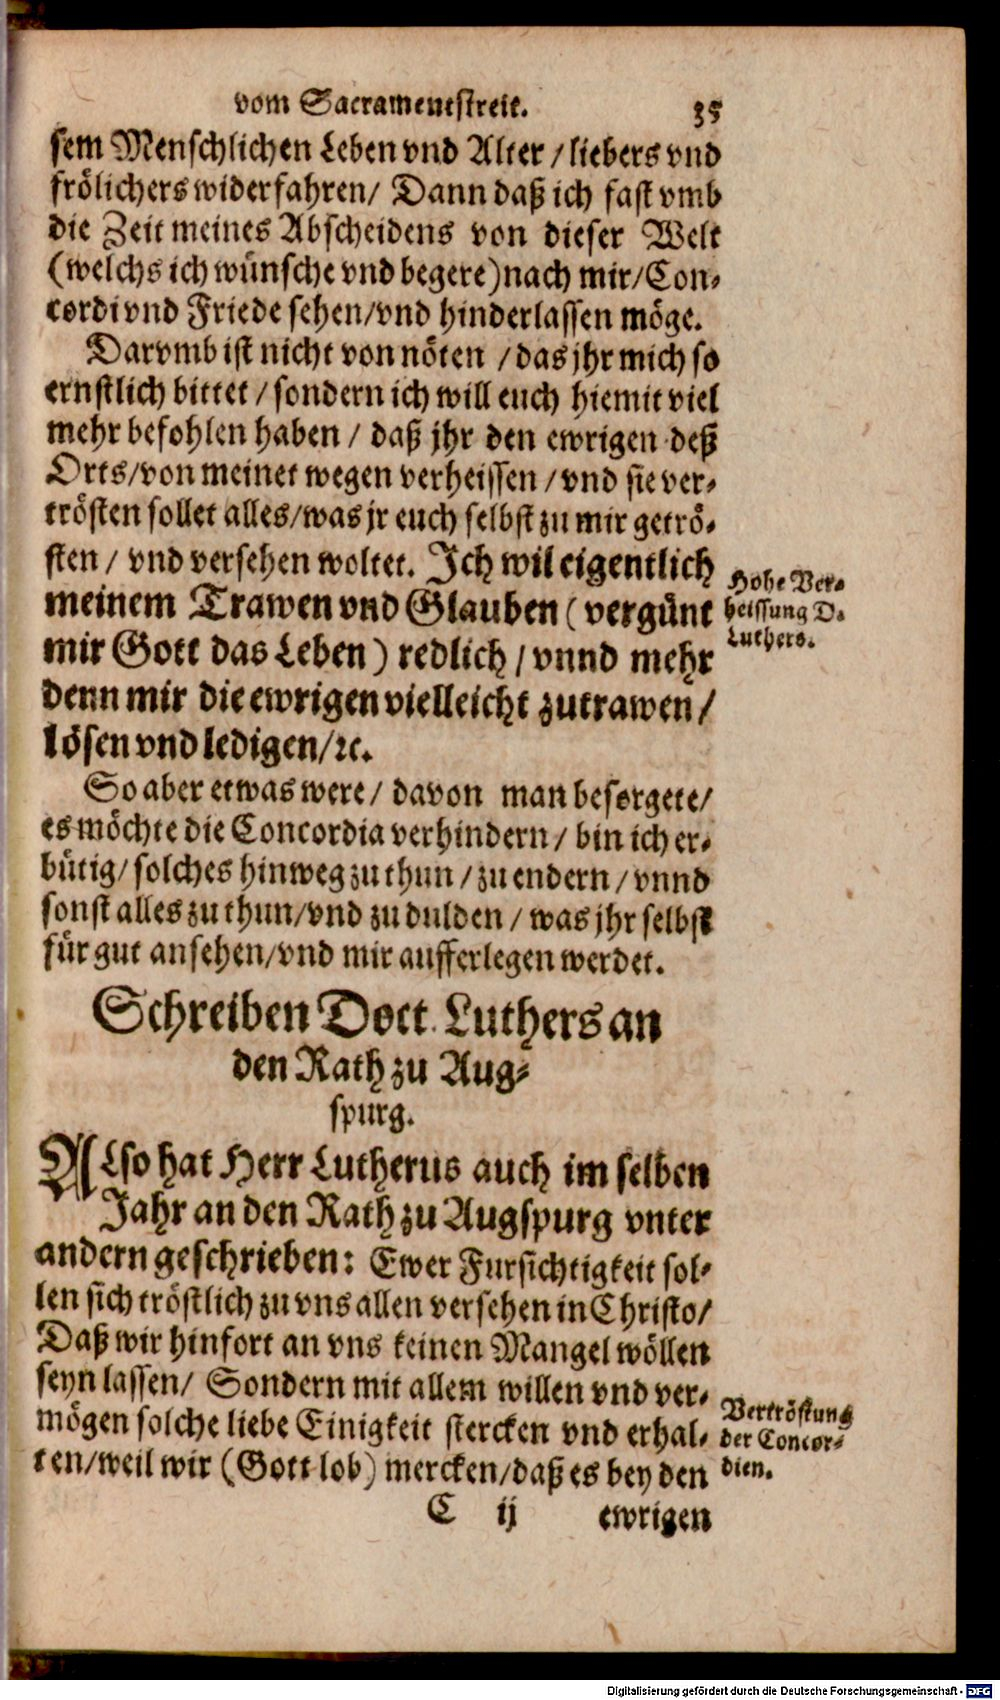 vom Sacramentstreit. 35
sem Menschlichen Leben vnd Alter / liebers vnd
frölichers widerfahren / Dann daß ich fast vmb
die Zeit meines Abscheidens von dieser Welt
(welchs ich wünsche vnd begere) nach mir / Con-
cordi vnd Friede sehen / vnd hinderlassen möge.
Darvmb ist nicht von nöten / das jhr mich so
ernstlich bittet / sondern ich will euch hiemit viel
mehr befohlen haben / daß jhr den ewrigen deß
Orts / von meinet wegen verheissen / vnd sie ver-
trösten sollet alles / was jr euch selbst zu mir getrö-
sten / vnd versehen woltet. Ich wil eigentlich
meinem Trawen vnd Glauben (vergünt
mir Gott das Leben) redlich / vnnd mehr
denn mir die ewrigen vielleicht zutrawen /
lösen vnd ledigen / ꝛc.
Hohe Ver-
heissung D.
Luthers.
So aber etwas were / davon man besorgete /
es möchte die Concordia verhindern / bin ich er-
bütig / solches hinweg zu thun / zu endern / vnnd
sonst alles zu thun / vnd zu dulden / was jhr selbst
für gut ansehen / vnd mir aufferlegen werdet.
Schreiben Doct. Luthers an
den Rath zu Aug-
spurg.
ALso hat Herr Lutherus auch im selben
Jahr an den Rath zu Augspurg vnter
andern geschrieben: Ewer Fursichtigkeit sol-
len sich tröstlich zu vns allen versehen in Christo /
Daß wir hinfort an vns keinen Mangel wöllen
seyn lassen / Sondern mit allem willen vnd ver-
mögen solche liebe Einigkeit stercken vnd erhal-
ten / weil wir (Gott lob) mercken / daß es bey den
Vertröstung
der Concor-
dien.
C ij ewrigen
Digitalisierung gefördert durch die Deutsche Forschungsgemeinschaft - DFG